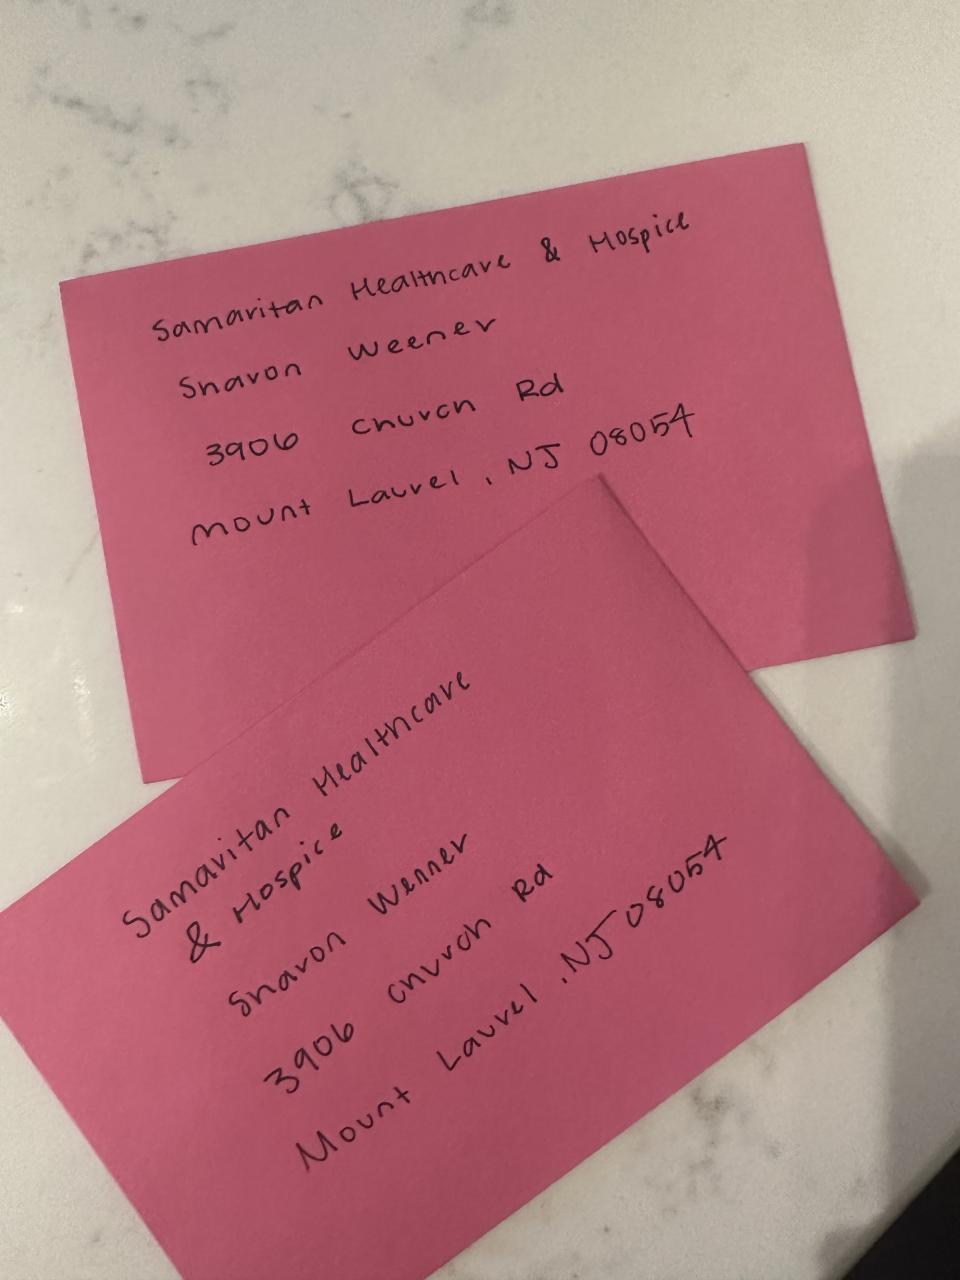 Samaritan Healthcare & Hospice
Sharon Weener
3906 Church Rd
Mount Laurel, NJ 08054
Samaritan Healthcare
& Hospice
Sharon Wenner
3906 Church Rd
Mount Laurel, NJ 08054